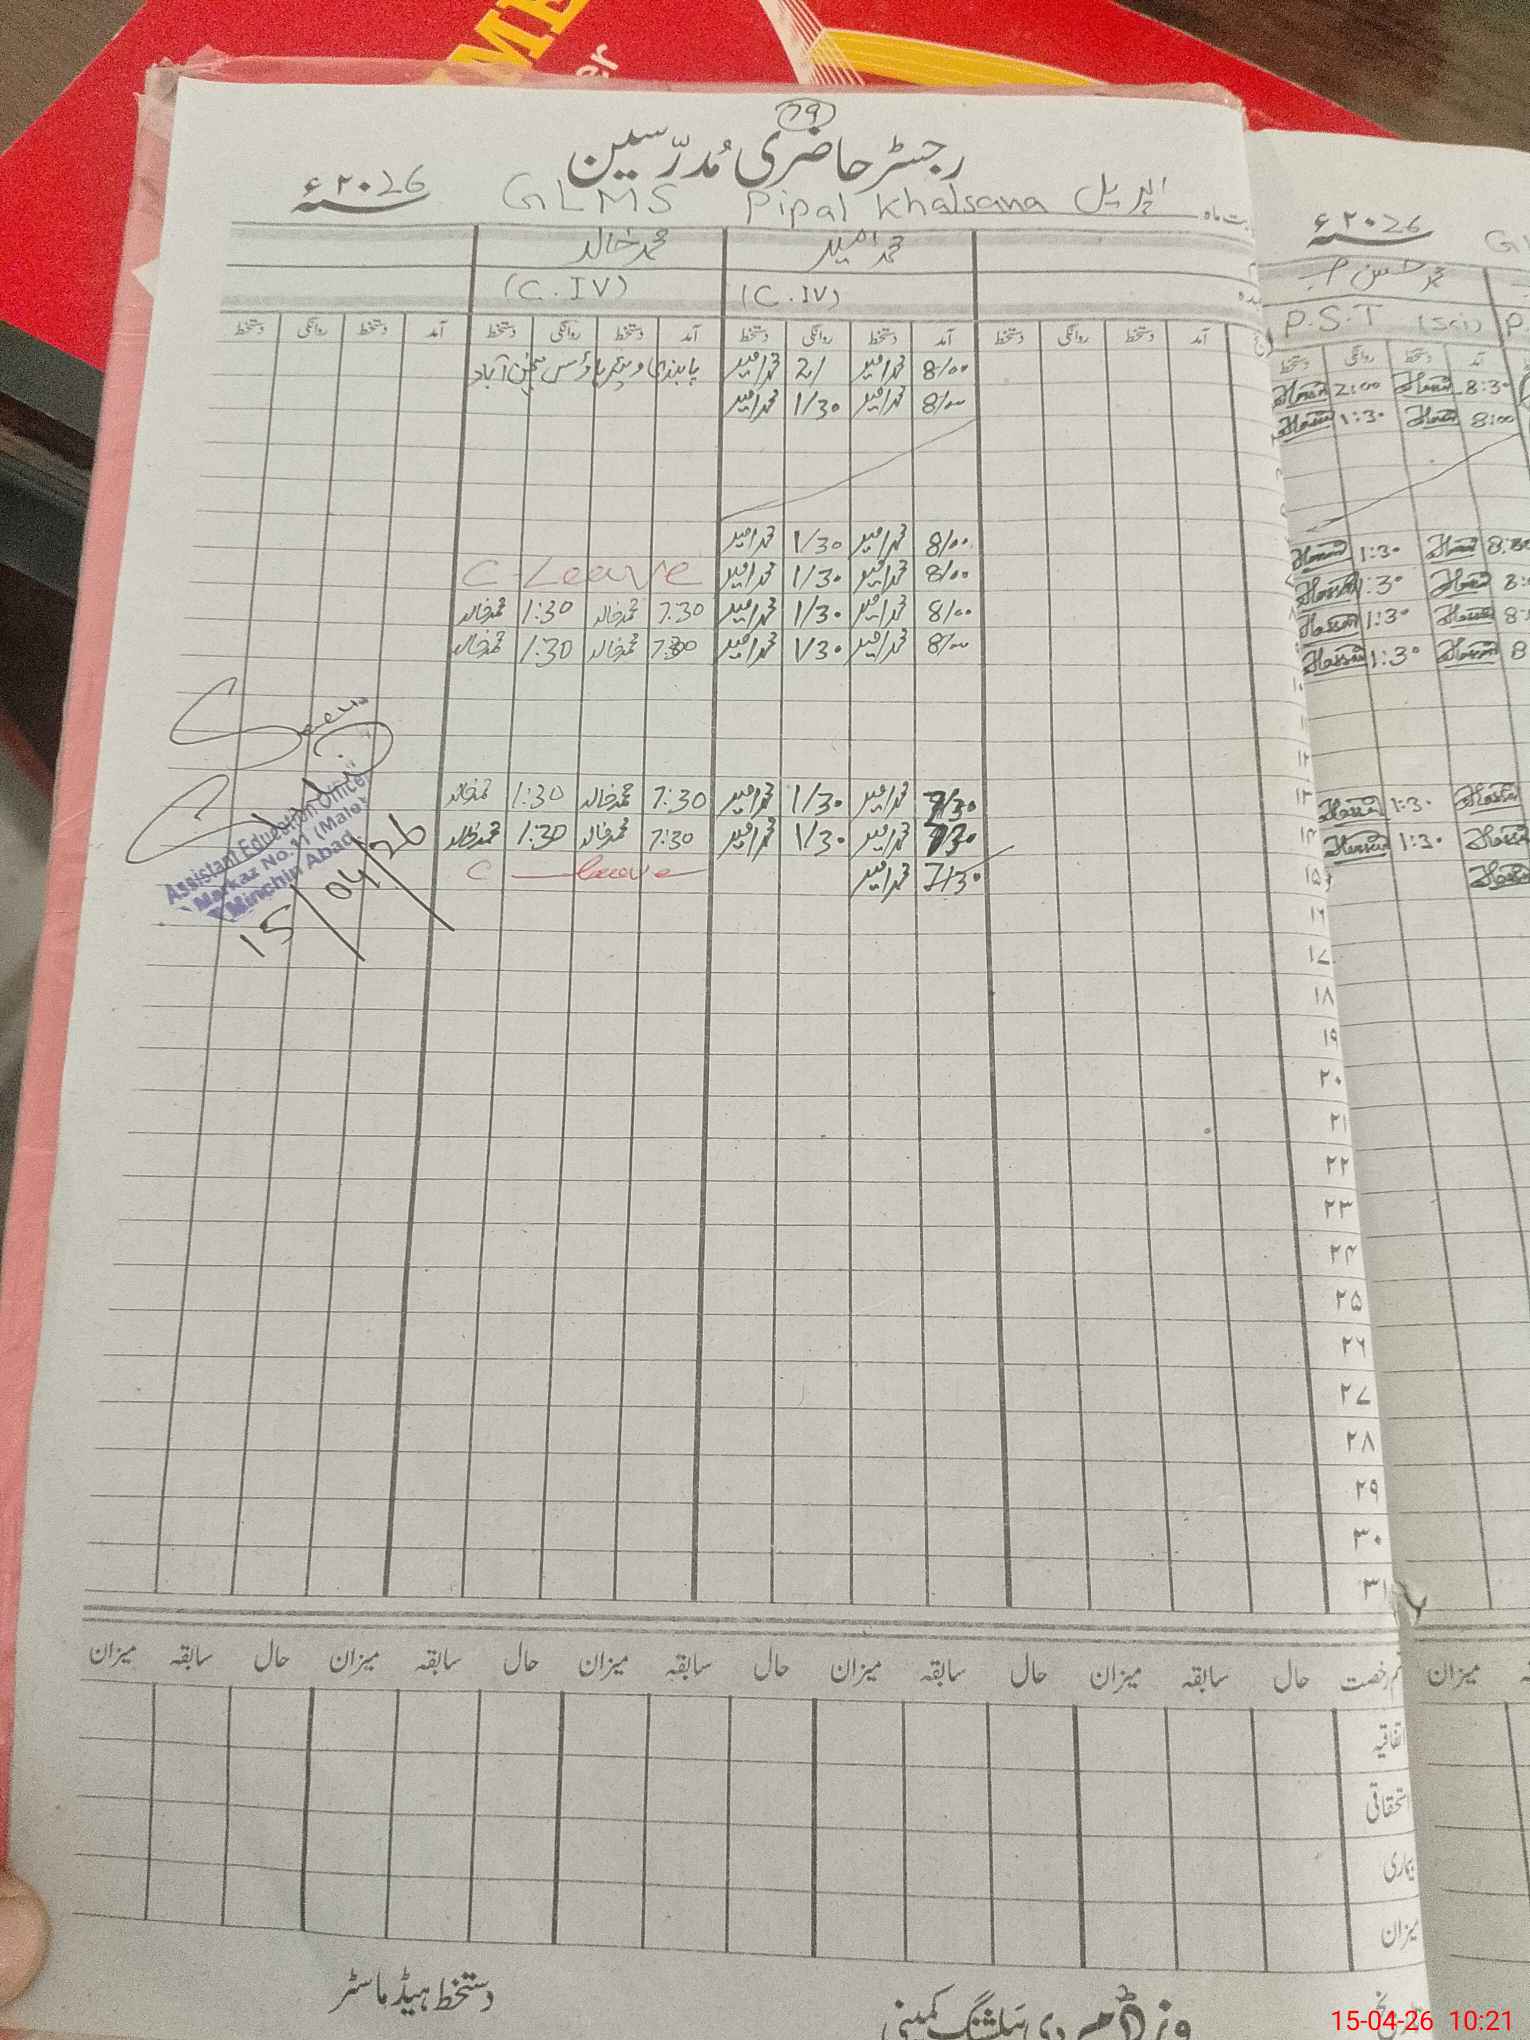 79
رجسٹر حاضری مُدرّسین
سنہ ۲۰26ء GLMS Pipal Khalsana اپریل بت ماہ
محمد خالد محمد امیر
(C.IV) (C.IV)
آمد دستخط روانگی دستخط آمد دستخط روانگی دستخط آمد دستخط روانگی دستخط آمد دستخط روانگی دستخط
8/00 محمد امیر 2/ محمد امیر
8/00 محمد امیر 1/30 محمد امیر
8/00 محمد امیر 1/30 محمد امیر
8/00 محمد امیر 1/30 محمد امیر C-Leave
8/00 محمد امیر 1/30 محمد امیر 7:30 محمد خالد 1:30 محمد خالد
8/00 محمد امیر 1/30 محمد امیر 7:30 محمد خالد 1:30 محمد خالد
۱۰
۱۱
۱۲
۱۳ 7/30 محمد امیر 1/30 محمد امیر 7:30 محمد خالد 1:30 محمد خالد
۱۴ 7/30 محمد امیر 1/30 محمد امیر 7:30 محمد خالد 1:30 محمد خالد
۱۵ 7/30 محمد امیر C-leave
Seen
Assistant Education Officer
Markaz No.31 (Male)
Minchin Abad
15/04/26
۱۶
۱۷
۱۸
۱۹
۲۰
۲۱
۲۲
۲۳
۲۴
۲۵
۲۶
۲۷
۲۸
۲۹
۳۰
۳۱
رخصت حال سابقہ میزان حال سابقہ میزان حال سابقہ میزان حال سابقہ میزان حال سابقہ میزان
اتفاقیہ
استحقاقی
بیماری
میزان
دستخط ہیڈ ماسٹر
سنہ ۲۰26ء
P.S.T (Sci)
آمد دستخط روانگی دستخط
8:30 Hassan 2:00 Hassan
8:00 Hassan 1:30 Hassan
Hassan 1:30 Hassan
Hassan 1:30 Hassan
Hassan 1:30 Hassan
Hassan 1:30 Hassan
Hassan 1:30 Hassan
Hassan 1:30 Hassan
Hassan
میزان
15-04-26 10:21